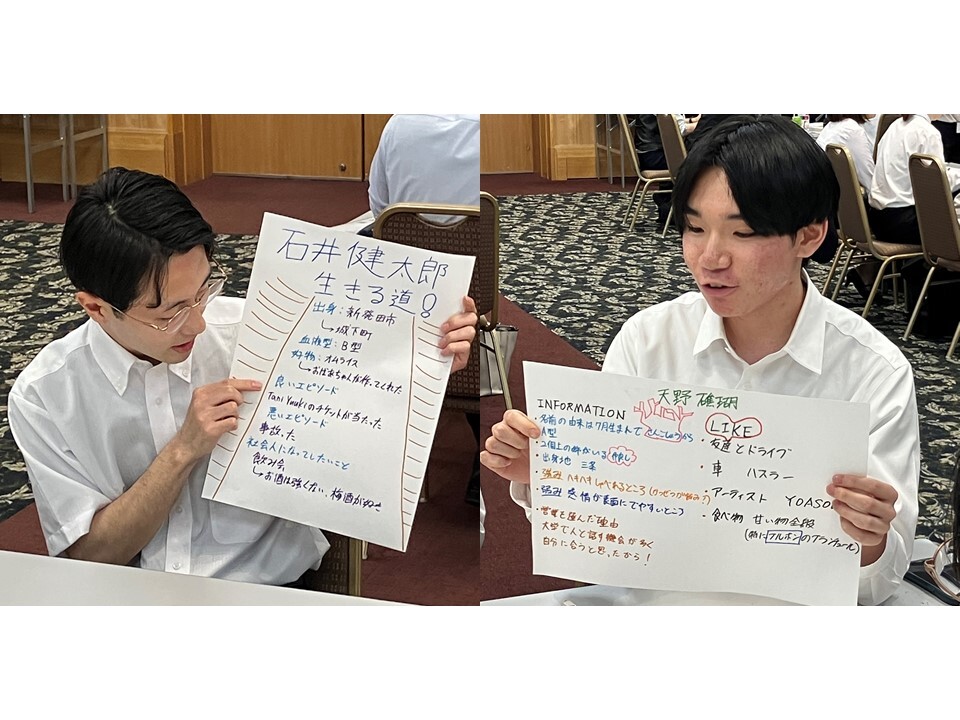 石井健太郎
生きる道!
出身:新発田市
↳城下町
血液型:B型
好物:オムライス
↳おばあちゃんが作ってくれた
良いエピソード
Tani Yuukiのチケットが当たった
悪いエピソード
事故った
社会人になってしたいこと
飲み会
↳お酒は強くない、梅酒が
天野 瑚
INFORMATION
・名前の由来は7月生まれで さんごしょうから
・A型
・2個上の姉がいる 仲良し
・出身地 三条
・強み ハキハキしゃべれるところ
・弱み 感情が表面にでやすいところ
・営業を選んだ理由
大学で人と話す機会が多く
自分に合うと思ったから!
LIKE
・友達とドライブ
・車 ハスラー
・アーティスト YOASO
・食べ物 甘い物全般
(特にブルボンのブランチュール)